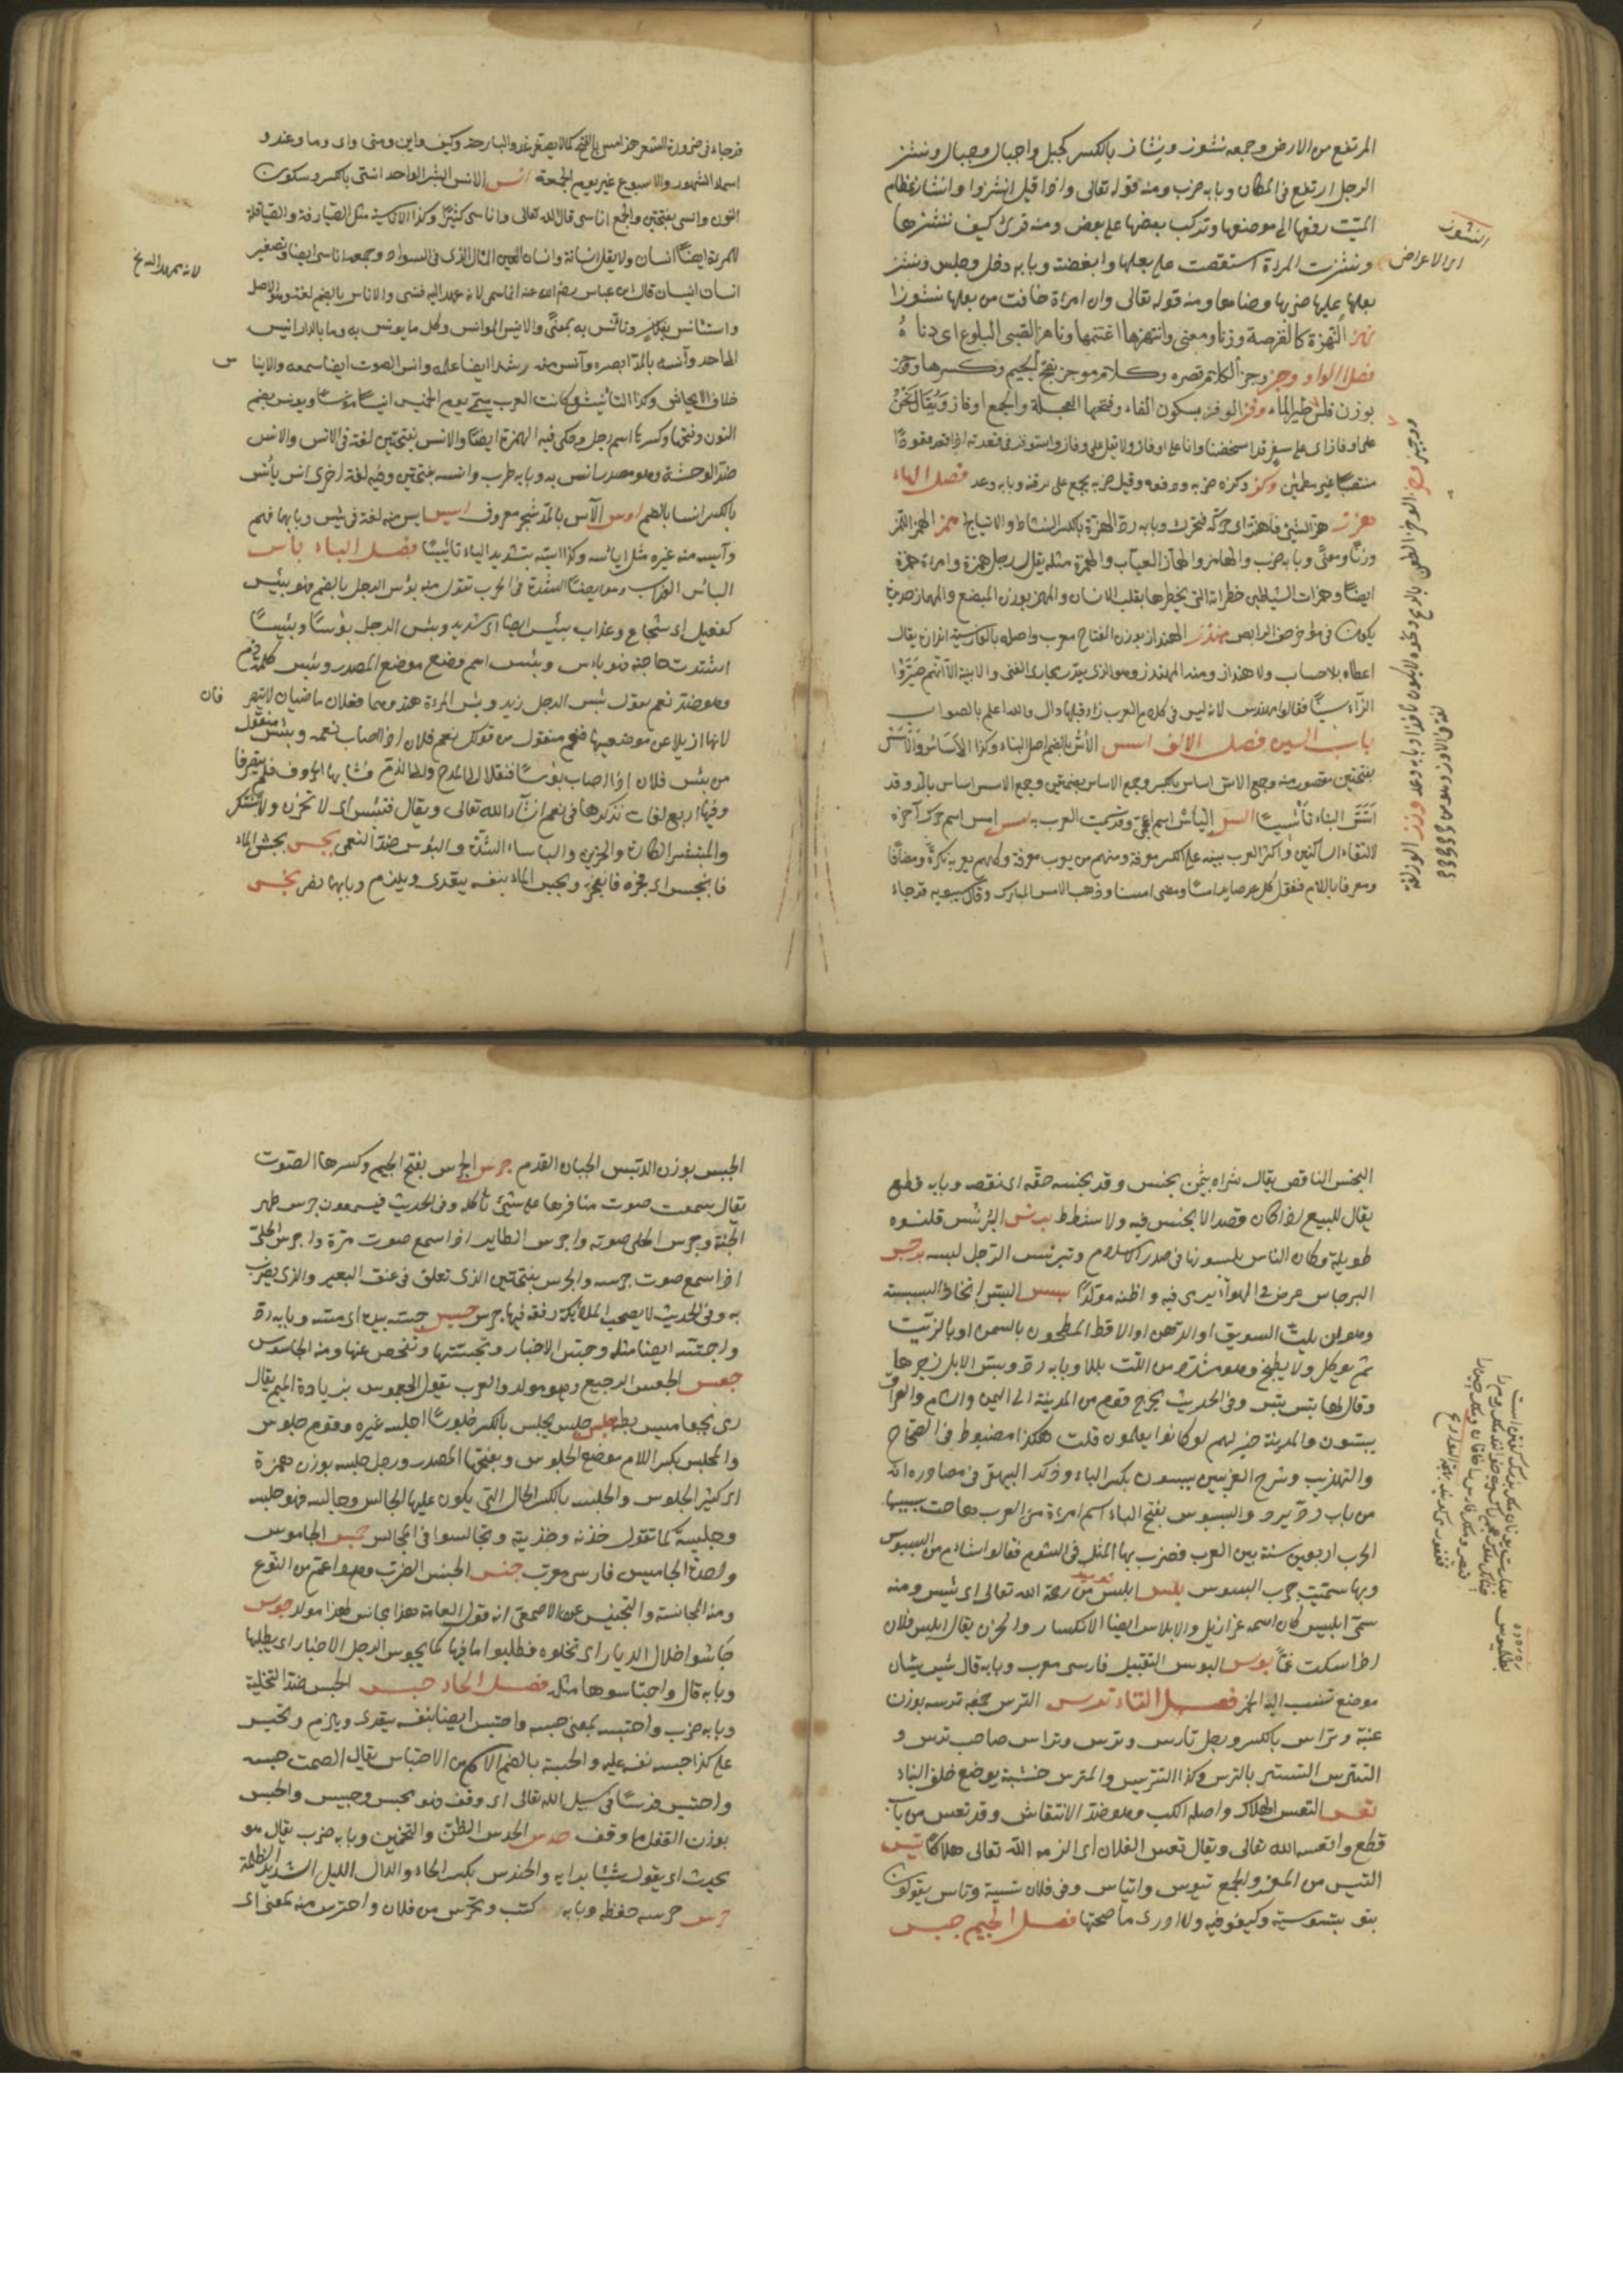 المرتفع من الارض وجمعه نشوز ونشاز بالكسر كجبل واجبال وجبال ونشز
الرجل ارتفع فى المكان وبابه ضرب ومنه قوله تعالى واذا قيل انشزوا وانشاز عظام
الميّت رفعها الى موضعها وتركيب بعضها على بعض ومنه قرئ كيف ننشزها
ونشزت المراة استعصت على بعلها وابغضته وبابه دخل وجلس ونشز
بعلها عليها ضربها وجفاها ومنه قوله تعالى وان امراة خافت من بعلها نشوزا
نهز النّهزة كالفرصة وزنا ومعنى وانتهزها اغتنمها وناهز الصّبى البلوغ اى دناه
فصل الواو وجز وجز الكلام قصره وكلام موجز بفتح الجيم وكسرها ووجز
بوزن فلس وفز الوفز بسكون الفاء وفتحها العجلة والجمع اوفاز ويقال نحن
على اوفاز اى على سفر قد اشخصنا وانا على اوفاز ولا تقل على وفاز واستوفز فى قعدته اذا قعد قعودًا
منتصبًا غير مطمئن وكز وكزه ضربه ودفعه وقيل ضربه بجمع على ذقنه وبابه وعد فصل الهاء
هزز هزّ الشئ فاهتز اى حرّكه فتحرك وبابه ردّ الهزة بالكسر النشاط والارتياح همز الهمز اللمز
وزنًا ومعنًى وبابه ضرب والهامز والهمّاز العيّاب والهمزة مثله يقال رجل همزة وامراة همزة
ايضًا وهمزات الشيطان خطراته التى يخطرها بقلب الانسان والمهمز بوزن المبضع والمهماز حديدة
تكون فى مؤخر خف الرايض هندز الهنداز بوزن المفتاح معرب واصله بالفارسية اندازه يقال
اعطاه بلا حساب ولا هنداز ومنه المهندز وهو الذى يقدّر مجارى القنى والابنية الّا انّهم صيّروا
الزاء سينًا فقالوا مهندس لانه ليس فى كلام العرب زاء قبلها دال والله اعلم بالصواب
باب السين فصل الالف اسس الأسّ بالضم اصل البناء وكذا الاساس والأسس
بفتحتين مقصور منه وجمع الاس اساس بالكسر وجمع الاساس اسس بضمتين وجمع الاسس اساس بالمد وقد
اسّس البناء تأسيسًا الياس اسم اعجمى وقد سمّت العرب به امس امس اسم حرّك آخره
لالتقاء الساكنين واكثر العرب يبنيه على الكسر معرفة ومنهم من يعربه معرفة وكلهم يعربه نكرة ومضافًا
ومعرفا باللام فتقول كل غد صاير امسًا ومضى امسنا وذهب الامس المبارك وقال سيبويه قد جاء
النشوز
اى الاعراض
قد جاء فى ضرورة الشعر مذ امس بالفتح كما لا يصغر غد والبارحة وكيف واين ومتى واى وما وعند و
اسماء الشهور والاسبوع غير يوم الجمعة انس الانس البشر الواحد انسى بالكسر وسكون
النون وانسى بفتحتين والجمع اناسى قال الله تعالى واناسى كثيرًا وكذا الاناسية مثل الصيارفة والصياقلة
للمراة ايضًا انسان ولا يقال انسانة وانسان العين المثال الذى فى السواد وجمعه اناسى ايضا وتصغير
انسان انيسان قال ابن عباس رضى الله عنه انما سمى لانه عهد اليه فنسى والاناس بالضم لغة وهو الاصل
واستأنس بفلان وتأنس به بمعنًى والانيس الموانس وكل ما يونس به وما بالدار انيس
اى احد وآنسه بالمد ابصره وآنس منه رشدا ايضا علمه وانس الصوت ايضا سمعه والايناس
خلاف الايحاش وكذا التأنيس وكانت العرب تسمّى يوم الخميس مؤنسًا ويونس بضم
النون وفتحها وكسرها اسم رجل وحكى فيه الهمزة ايضًا والانس بفتحتين لغة فى الانس والانس
ضد الوحشة وهو مصدر انس به وبابه طرب وانسه بفتحتين وفيه لغة اخرى انس يأنس
بالكسر انسا بالضم اوس الآس بالمد شجر معروف ايس ايس منه لغة فى يئس وبابها فهم
وآيسه منه غيره مثل ايأسه وكذا ايّسه بتشديد الياء تأييسًا فصل الباء بأس
البأس العذاب وهو ايضا الشدة فى الحرب تقول منه بؤس الرجل بالضم فهو بئيس
كفعيل اى شجاع وعذاب بئيس ايضا اى شديد وبئس الرجل بؤسًا وبئيسًا
اشتدت حاجته فهو بائس وبئيس اسم وضع موضع المصدر وبئس كلمة ذم
وهو ضد نعم تقول بئس الرجل زيد وبئس المراة هند وهما فعلان ماضيان لا يتصرفان
لانهما ازيلا عن موضعهما فنعم منقول من قولك نعم فلان اذا اصاب نعمة وبئس منقول
من بئس فلان اذا اصاب بؤسًا فنقلا الى المدح والى الذم فشابها الحروف فلم يتصرفا
وفيها اربع لغات نذكرها فى نعم ان شاء الله تعالى ويقال لا تبتئس اى لا تحزن ولا تشتك
والمبتئس الكاره والحزين والبأساء الشدّة والبؤس ضد النعمى بجس بجس الماء
فانبجس اى فجره فانفجر وبجس الماء بنفسه يتعدى ويلزم وبابهما نصر بخس
لانه عهد اليه نخ
البخس الناقص يقال شراه بثمن بخس وقد بخسه حقّه اى نقصه وبابه قطع
يقال للبيع اذا كان قصدا لا بخس فيه ولا شطط برنس البرنس قلنسوه
طويلة وكان الناس يلبسونها فى صدر الاسلام وتبرنس الرّجل لبسه برجس
البرجاس غرض فى الهواء يرمى فيه واظنه مولدًا بسس البسّ اتخاذ البسيسة
وهو ان يلتّ السويق او الدقيق او الاقط المطحون بالسمن او بالزيت
ثم يوكل ولا يطبخ وهو اشدّ من اللت بللا وبابه ردّ وبسّ الابل زجرها
وقال لها بس بس وفى الحديث يخرج قوم من المدينة الى اليمن والشام والعراق
يبسون والمدينة خير لهم لو كانوا يعلمون قلت هكذا مضبوط فى الصحاح
والتهذيب وشرح الغريبين يبسون بكسر الباء وذكر البيهقى فى مصادره انه
من باب ردّ يردّ والبسوس بفتح الباء اسم امراة من العرب هاجت بسببها
الحرب اربعين سنة بين العرب فضرب بها المثل فى الشوم فقالوا اشام من البسوس
وبها سمّيت حرب البسوس بلس ابلس من رحمة الله تعالى اى يئس ومنه
سمّى ابليس كان اسمه عزازيل والابلاس ايضا الانكسار والحزن يقال ابلس فلان
اذا سكت غمًّا بوس البوس التقبيل فارسى معرب وبابه قال بيس بيسان
موضع تنسب اليه الخمر فصل التاء ترس الترس جمعه ترسه بوزن
عنبة وتراس بالكسر ورجل تارس وترس وتراس صاحب ترس و
التترس التستر بالترس وكذا التتريس والمترس خشبة توضع خلف الباب
تعس التعس الهلاك واصله الكب وهو ضد الانتعاش وقد تعس من باب
قطع واتعسه الله تعالى ويقال تعسا لفلان اى الزمه الله تعالى هلاكًا تيس
التيس من المعز والجمع تيوس واتياس وفى فلان تيسية وناس يقولون
تيوسية وكيفوفية ولا ادرى ما صحتها فصل الجيم جبس
الجبس بوزن الدبس الجبان الفدم جرس الجرس بفتح الجيم وكسرها الصوت
يقال سمعت صوت مناقرها على شئ تأكله وفى الحديث فيسمعون جرس طير
الجنة وجرس الحلى صوته واجرس الطاير اذا سمع صوت مرّه واجرس الحلى
اذا سمع صوت جرسه والجرس بفتحتين الذى تعلق فى عنق البعير والذى يضرب
به وفى الحديث لا تصحب الملائكة رفقة فيها جرس جسس جسّه بيده اى مسّه وبابه ردّ
واجتسّه ايضا مثله وجسّ الاخبار وتجسسها وتفحص عنها ومنه الجاسوس
جعس الجعس الرجيع وهو مولد والعرب تقول الجعموس بزيادة الميم يقال
رمى بجعاميس بطنه جلس جلس يجلس بالكسر جلوسًا اجلسه غيره وقوم جلوس
والمجلس بكسر اللام موضع الجلوس وبفتحها المصدر ورجل جلسه بوزن همزة
اى كثير الجلوس والجلسه بالكسر الحال التى يكون عليها الجالس وجالسه فهو جلسه
وجليسه كما تقول خدنه وخدينه وتجالسوا فى المجالس جمس الجاموس
واحد الجاميس فارسى معرب جنس الجنس الضرب وهو اعم من النوع
ومنه المجانسة والتجنيس وعن الاصمعى ان قول العامة هذا مجانس لهذا مولد جوس
جاسوا خلال الديار اى تخلّلوه فطلبوا ما فيها كما يجوس الرجل الاخبار اى يطلبها
وبابه قال واجتاسوها مثله فصل الحاء حبس الحبس ضدّ التخلية
وبابه ضرب واحتبسه بمعنى حبسه واحتبس ايضا بنفسه يتعدى ويلزم وتحبس
على كذا حبس نفسه عليه والحبسة بالضم الاسم من الاحتباس يقال الصمت حبسه
واحتبس فرسًا فى سبيل الله تعالى اى وقف فهو محبس وحبيس والحبس
بوزن القفل ما وقف حدس الحدس الظن والتخمين وبابه ضرب يقال هو
يحدس اى يقول شيئا برايه والحندس بكسر الحاء والدال الليل الشديد الظلمة
حرس حرسه حفظه وبابه كتب وتحرّس من فلان واحترس منه بمعنى اى